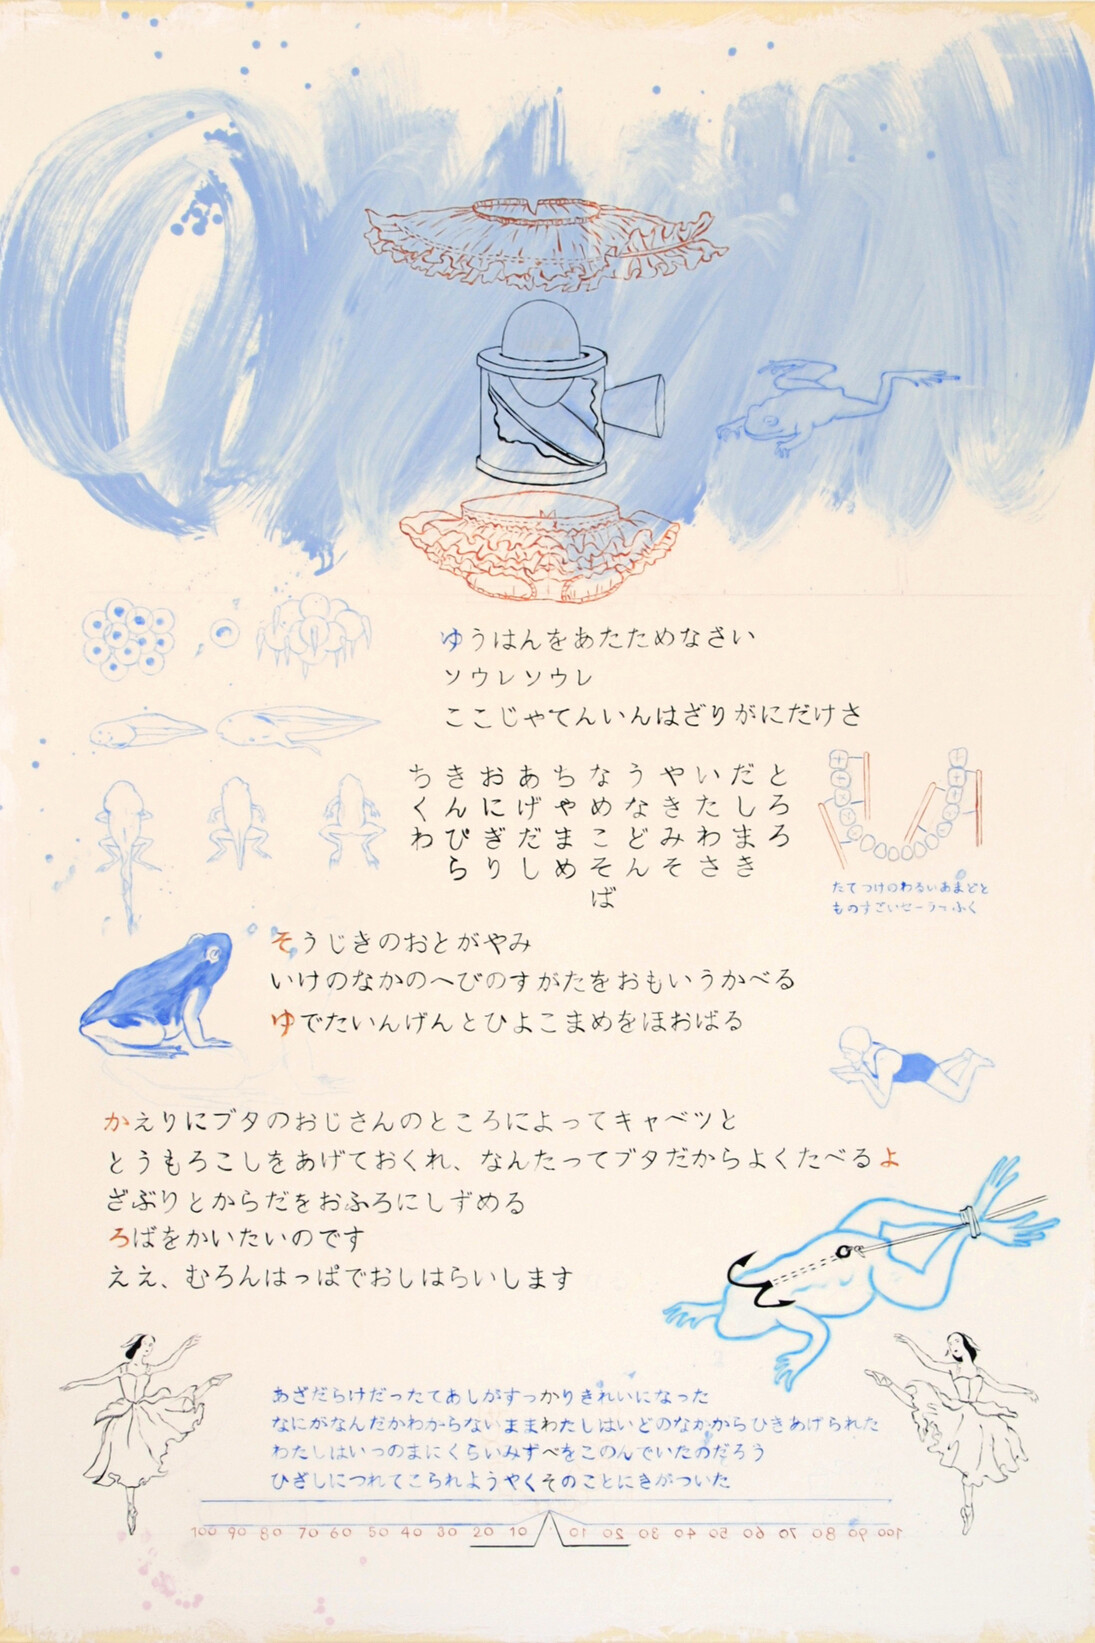 ゆうはんをあたためなさい
ソウレソウレ
ここじゃてんいんはざりがにだけさ
とろろ
だしまき
いたわさ
やきみそ
うなどん
なめこそば
ちゃまめ
あげだし
おにぎり
きんぴら
ちくわ
たてつけのわるいあまどと
ものすごいセーラーふく
そうじきのおとがやみ
いけのなかのへびのすがたをおもいうかべる
ゆでたいんげんとひよこまめをほおばる
かえりにブタのおじさんのところによってキャベツと
とうもろこしをあげておくれ、なんたってブタだからよくたべるよ
ざぶりとからだをおふろにしずめる
ろばをかいたいのです
ええ、むろんはっぱでおしはらいします
あざだらけだったてあしがすっかりきれいになった
なにがなんだかわからないままわたしはいどのなかからひきあげられた
わたしはいつのまにくらいみずべをこのんでいたのだろう
ひざしにつれてこられようやくそのことにきがついた
100 90 80 70 60 50 40 30 20 10 10 20 30 40 50 60 70 80 90 100